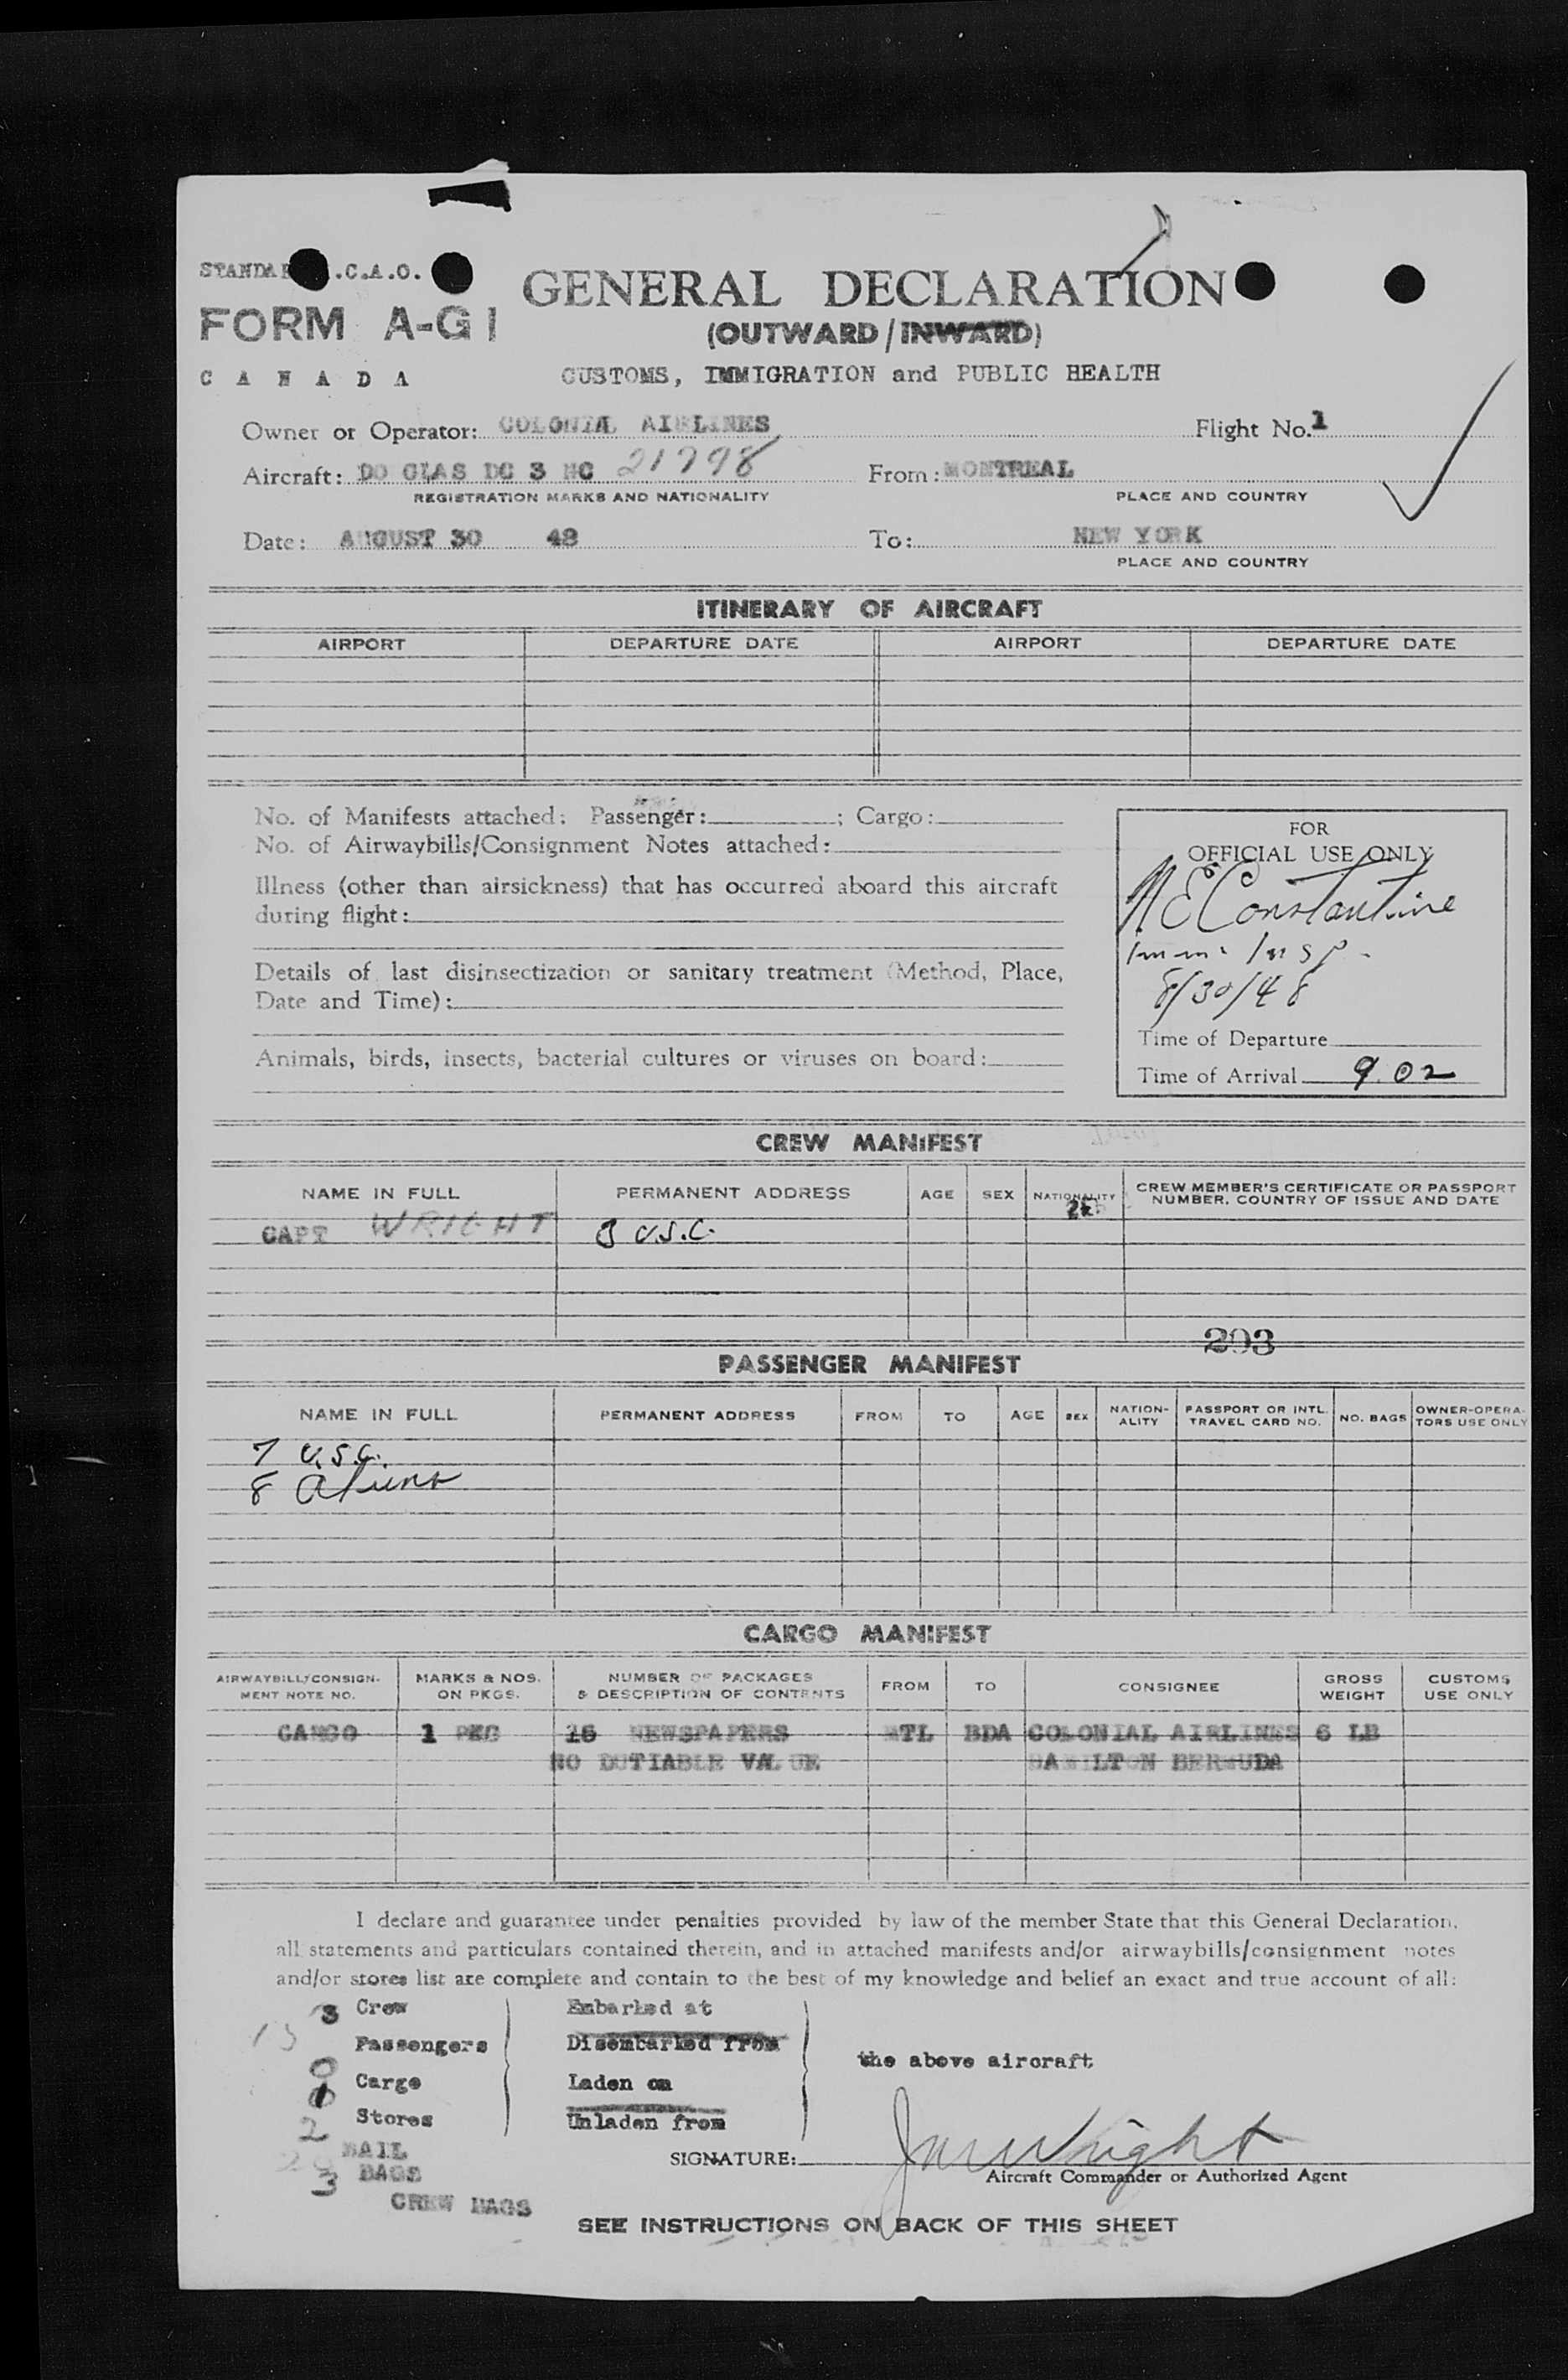 STANDAR .C.A.O.
FORM A-G1
CANADA
GENERAL DECLARATION
(OUTWARD/INWARD)
CUSTOMS, IMMIGRATION and PUBLIC HEALTH
Owner or Operator: COLONIAL AIRLINES Flight No. 1
Aircraft: DO GLAS DC 3 NC 21798 From: MONTREAL
REGISTRATION MARKS AND NATIONALITY PLACE AND COUNTRY
Date: AUGUST 30 48 To: NEW YORK
PLACE AND COUNTRY
ITINERARY OF AIRCRAFT
AIRPORT DEPARTURE DATE AIRPORT DEPARTURE DATE
No. of Manifests attached: Passenger: ; Cargo:
No. of Airwaybills/Consignment Notes attached:
Illness (other than airsickness) that has occurred aboard this aircraft
during flight:
Details of last disinsectization or sanitary treatment (Method, Place,
Date and Time):
Animals, birds, insects, bacterial cultures or viruses on board:
FOR
OFFICIAL USE ONLY
N E Constantine
Imm. Insp.
8/30/48
Time of Departure
Time of Arrival 9.02
CREW MANIFEST
NAME IN FULL PERMANENT ADDRESS AGE SEX NATIONALITY CREW MEMBER'S CERTIFICATE OR PASSPORT
NUMBER, COUNTRY OF ISSUE AND DATE
CAPT WRIGHT 3 U.S.C.
293
PASSENGER MANIFEST
NAME IN FULL PERMANENT ADDRESS FROM TO AGE SEX NATION-
ALITY PASSPORT OR INTL.
TRAVEL CARD NO. NO. BAGS OWNER-OPERA-
TORS USE ONLY
7 U.S.C.
8 Aliens
CARGO MANIFEST
AIRWAYBILL/CONSIGN-
MENT NOTE NO. MARKS & NOS.
ON PKGS. NUMBER OF PACKAGES
& DESCRIPTION OF CONTENTS FROM TO CONSIGNEE GROSS
WEIGHT CUSTOMS
USE ONLY
CARGO 1 PKG 16 NEWSPAPERS MTL BDA COLONIAL AIRLINES 6 LB
NO DUTIABLE VALUE HAMILTON BERMUDA
I declare and guarantee under penalties provided by law of the member State that this General Declaration,
all statements and particulars contained therein, and in attached manifests and/or airwaybills/consignment notes
and/or stores list are complete and contain to the best of my knowledge and belief an exact and true account of all:
3 Crew Embarked at
15 Passengers Disembarked from
the above aircraft
Cargo Laden on
0 Stores Unladen from
2 MAIL
BAGS
3 CREW BAGS
SIGNATURE: J M Wright
Aircraft Commander or Authorized Agent
SEE INSTRUCTIONS ON BACK OF THIS SHEET